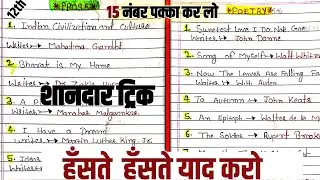 12th
*PROSE*
1. Indian Civilization and Culture
Writer → Mahatma Gandhi
2. Bharat is My Home
Writer → Dr. Zakir
3. A P
Writer → Manohar Malgonkar
4. I Have a Dream
Writer → Martin Luther King Jr.
5. Ideas
Writer →
15 नंबर पक्का कर लो
*POETRY*
1. Sweetest Love I Do Not Goe
Writer: → John Donne
2. Song of Myself → Walt Whitman
3. Now The Leaves Are Falling Fast
Writer → W.H. Auden
4. To Autumn → John Keats
5. An Epitaph → Walter de la M
6. The Soldier → Rupert Brooke
7.
Writer →
शानदार ट्रिक
हँसते हँसते याद करो